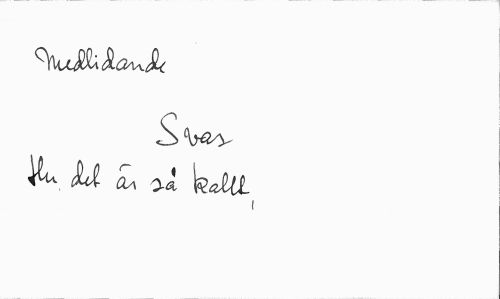 Medlidande
Svar
Hu, det är så kallt,